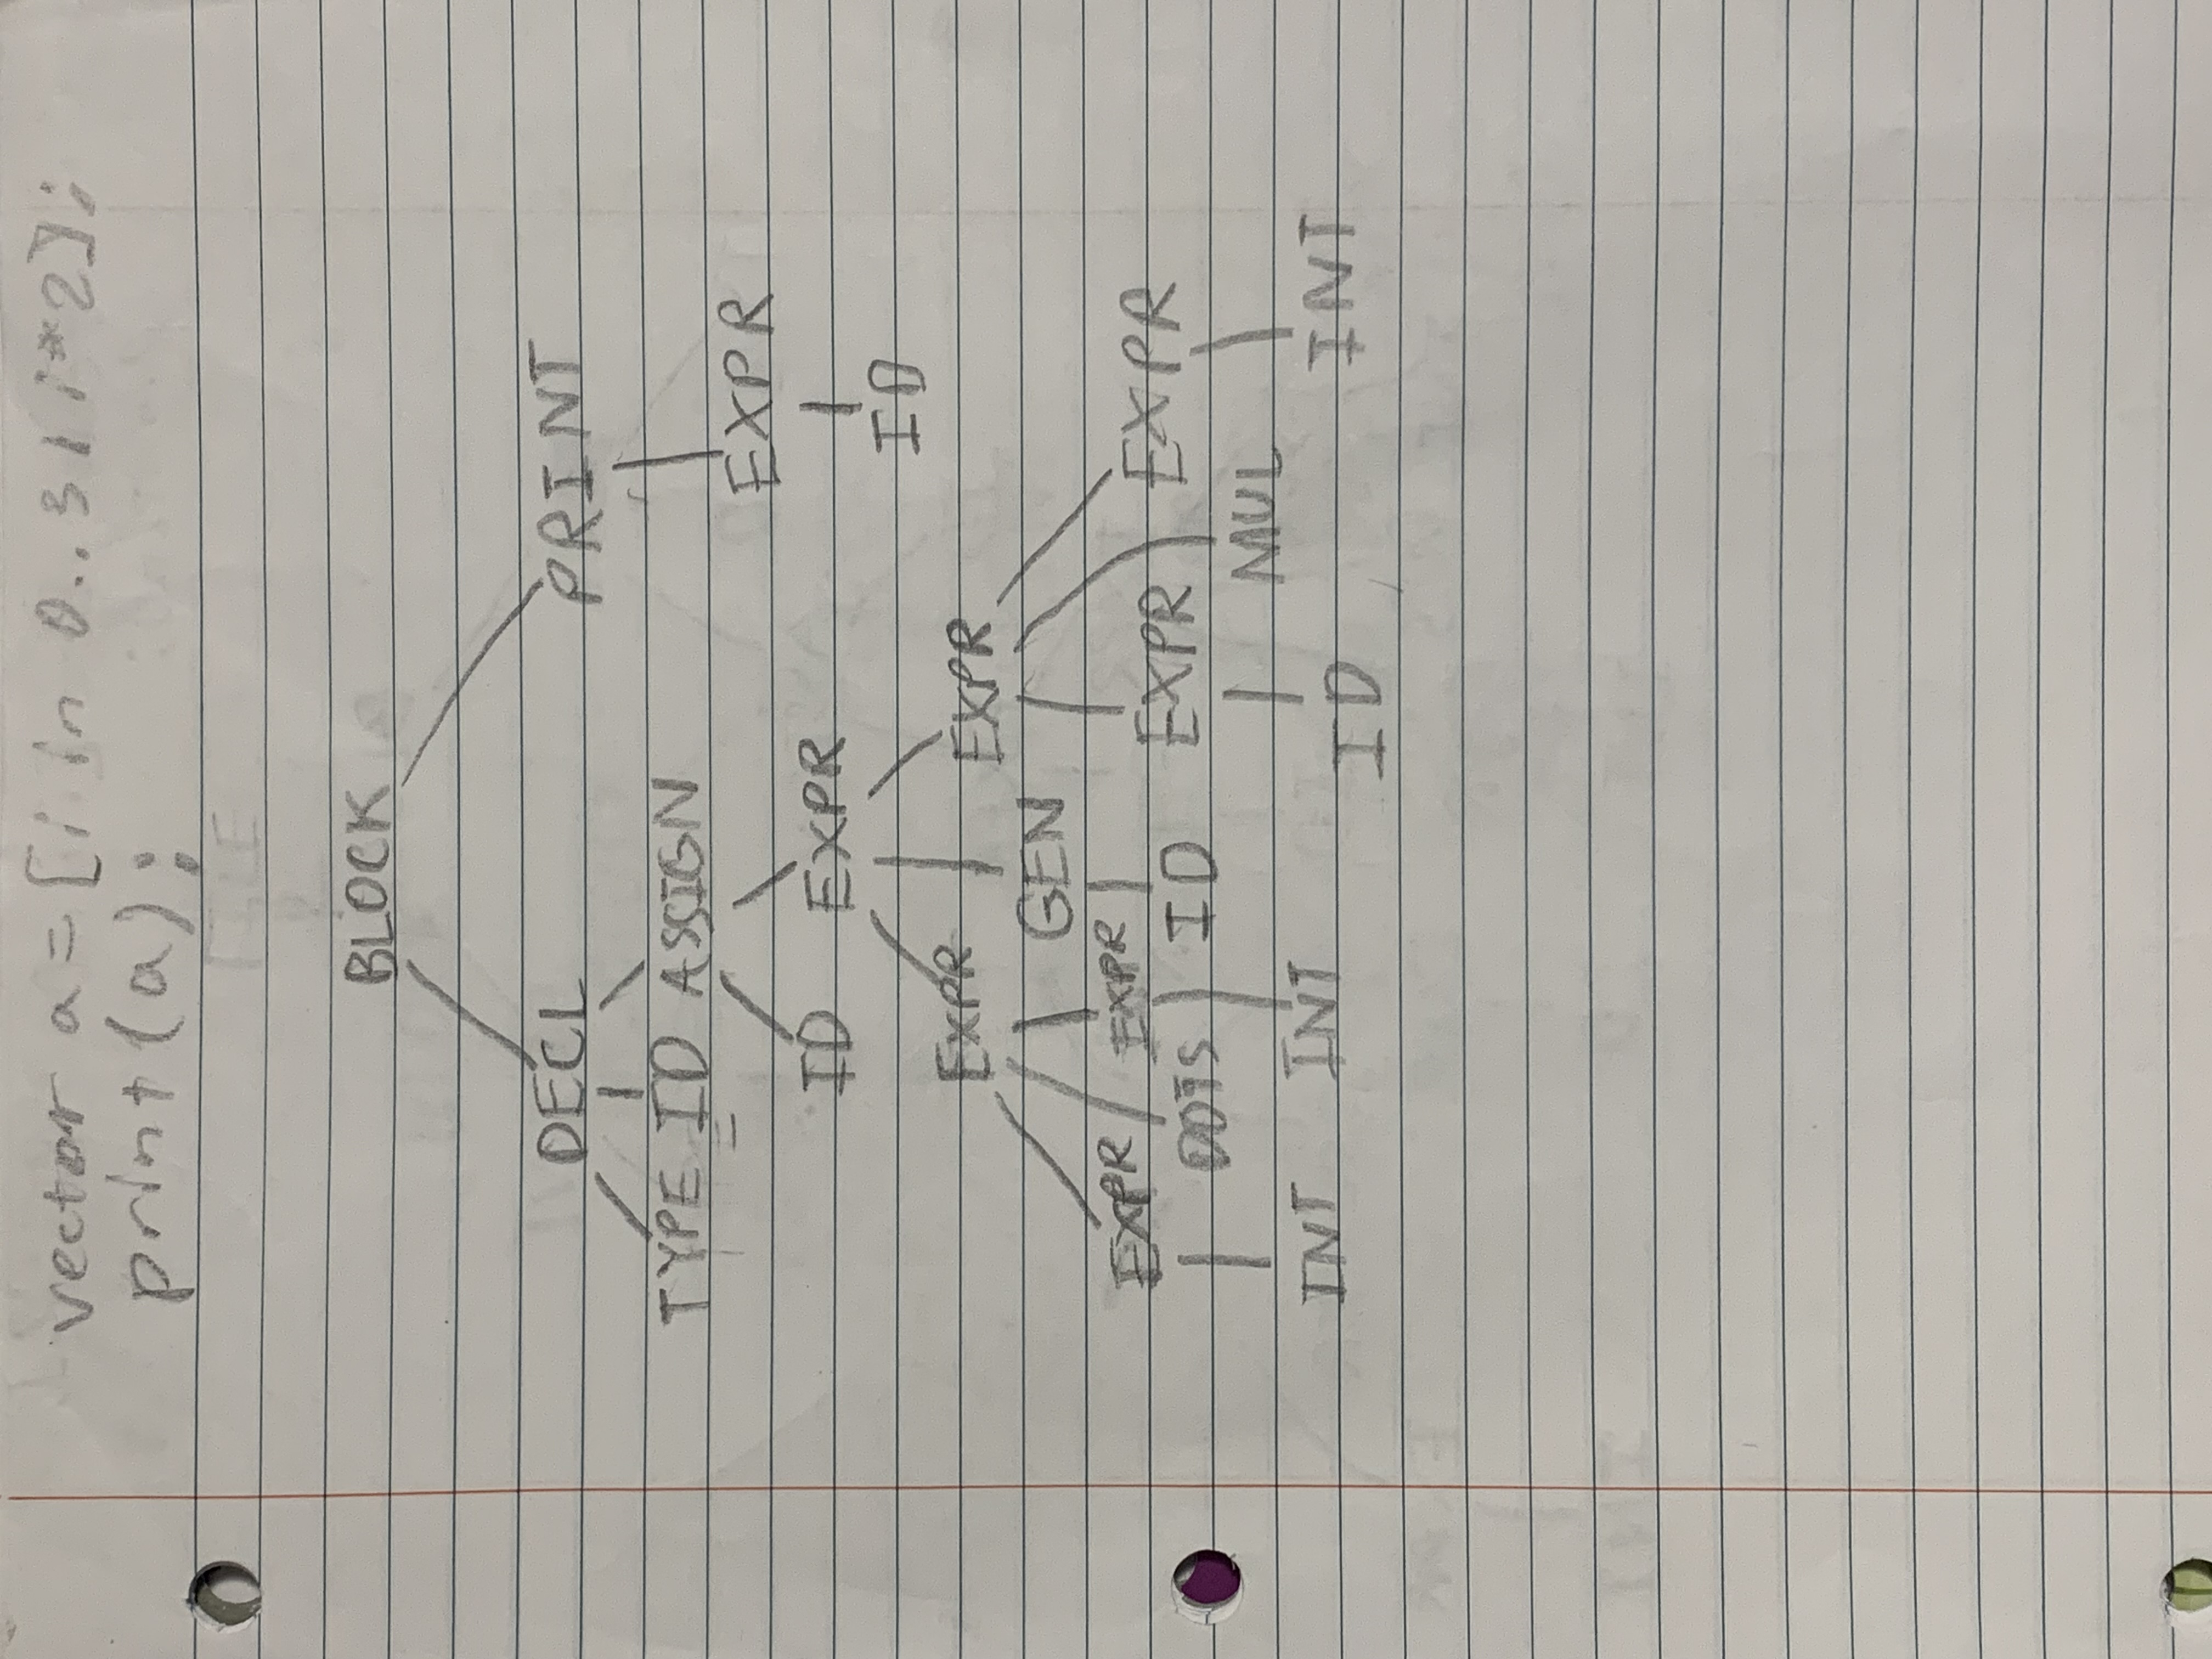 vector a = [i in 0..3 | i*2];
print(a);
BLOCK
DECL PRINT
TYPE ID ASSIGN
EXPR
ID EXPR
ID
EXPR EXPR
GEN
EXPR EXPR
ID EXPR EXPR
DOTS
MUL
INT INT INT
ID